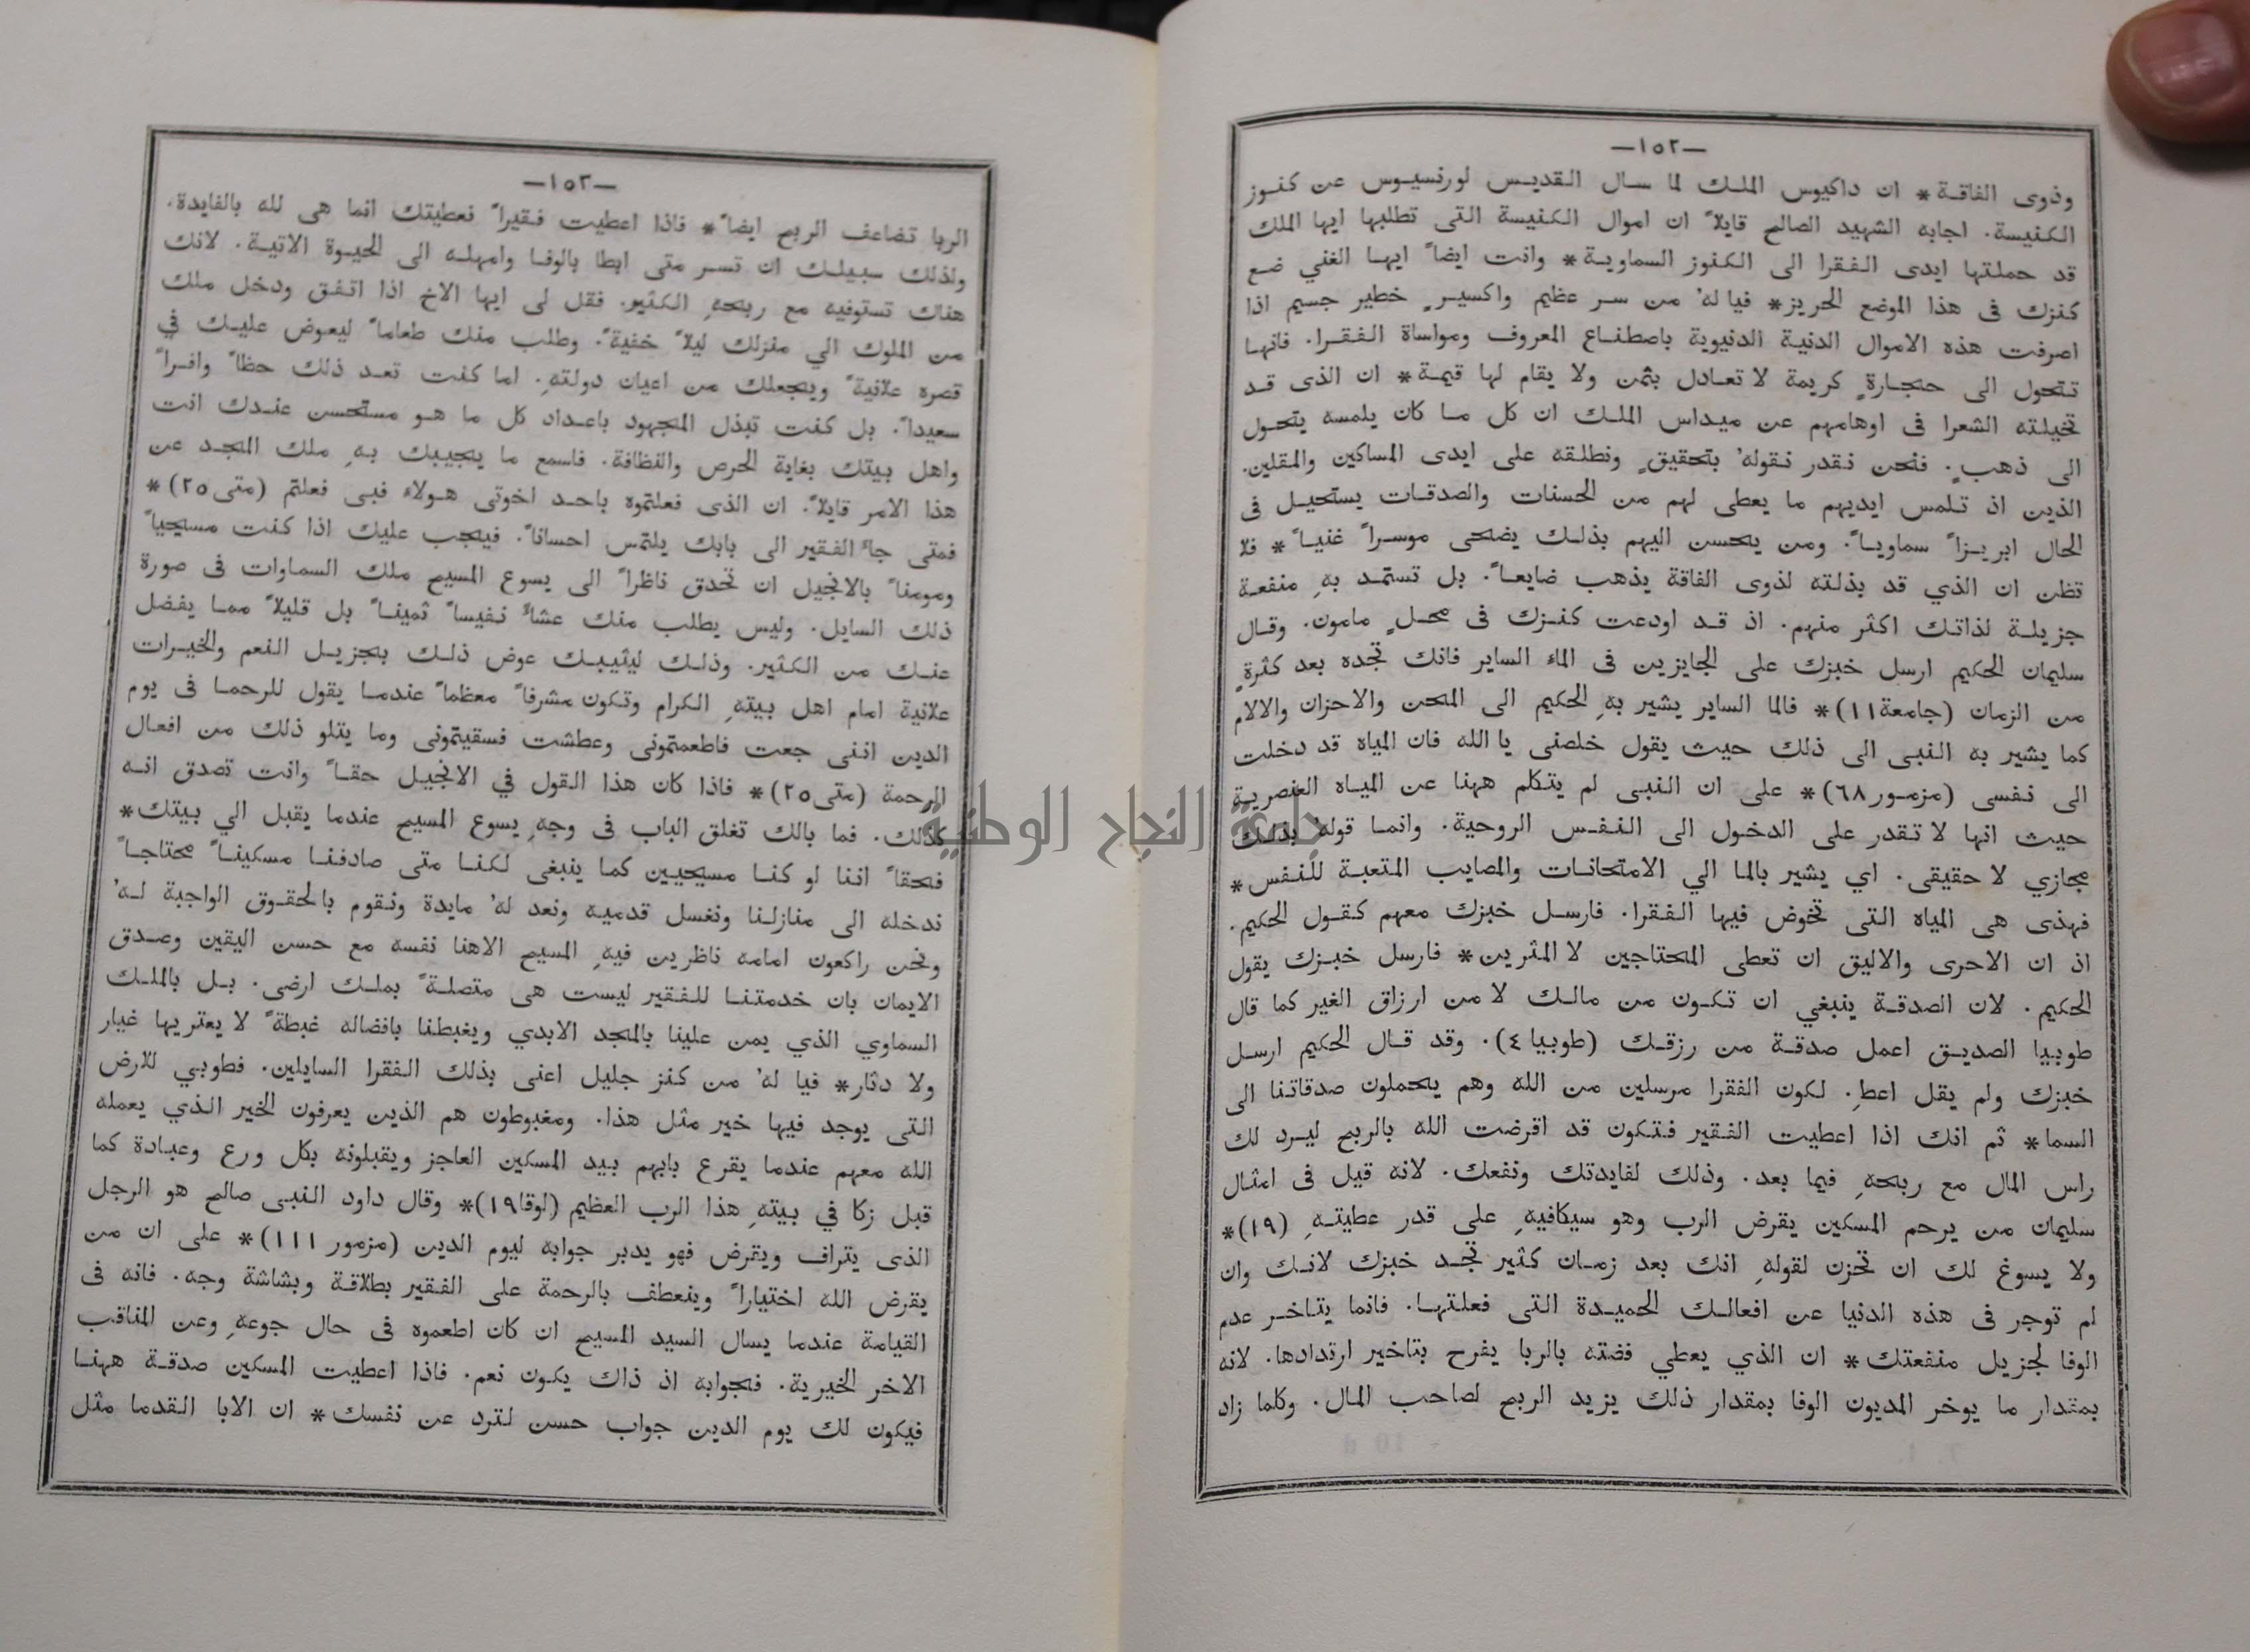 —١٥٢—
وذوى الفاقة* ان داكيوس الملك لما سال القديس لورنسيوس عن كنوز
الكنيسة. اجابه الشهيد الصالح قايلاً ان اموال الكنيسة التى تطلبها ايها الملك
قد حملتها ايدى الفقرا الى الكنوز السماوية* وانت ايضاً ايها الغني ضع
كنزك فى هذا الموضع الحريز* فيا لهُ من سر عظيم واكسيرٍ خطير جسيم اذا
اصرفت هذه الاموال الدنية الدنيوية باصطناع المعروف ومواساة الفقرا. فانها
تتحول الى حجارةٍ كريمة لا تعادل بثمن ولا يقام لها قيمة* ان الذى قد
تخيلته الشعرا فى اوهامهم عن ميداس الملك ان كل ما كان يلمسه يتحول
الى ذهبٍ. فنحن نقدر نقولهُ بتحقيقٍ ونطلقه على ايدى المساكين والمقلين.
الذين اذ تلمس ايديهم ما يعطى لهم من الحسنات والصدقات يستحيل فى
الحال ابريزاً سماوياً. ومن يحسن اليهم بذلك يضحى موسراً غنياً* فلا
تظن ان الذي قد بذلته لذوى الفاقة يذهب ضايعاً. بل تستمد بهِ منفعة
جزيلة لذاتك اكثر منهم. اذ قد اودعت كنزك فى محلٍ مامون. وقال
سليمان الحكيم ارسل خبزك على الجايزين فى الماء الساير فانك تجده بعد كثرةٍ
من الزمان (جامعة١١)* فالما الساير يشير بهِ الحكيم الى المحن والاحزان والالام
كما يشير به النبى الى ذلك حيث يقول خلصنى يا الله فان المياه قد دخلت
الى نفسى (مزمور٦٨)* على ان النبى لم يتكلم ههنا عن المياه العنصرية
حيث انها لا تقدر على الدخول الى النفس الروحية. وانما قولهُ بذلك
مجازي لا حقيقى. اي يشير بالما الي الامتحانات والمصايب المتعبة للنفس*
فهذى هى المياه التى تخوض فيها الفقرا. فارسل خبزك معهم كقول الحكيم.
اذ ان الاحرى والاليق ان تعطى المحتاجين لا المثرين* فارسل خبزك يقول
الحكيم. لان الصدقة ينبغي ان تكون من مالك لا من ارزاق الغير كما قال
طوبيا الصديق اعمل صدقة من رزقك (طوبيا٤). وقد قال الحكيم ارسل
خبزك ولم يقل اعطِ. لكون الفقرا مرسلين من الله وهم يحملون صدقاتنا الى
السما* ثم انك اذا اعطيت الفقير فتكون قد اقرضت الله بالربح ليرد لك
راس المال مع ربحهِ فيما بعد. وذلك لفايدتك ونفعك. لانه قيل فى امثال
سليمان من يرحم المسكين يقرض الرب وهو سيكافيهِ على قدر عطيتهِ (١٩)*
ولا يسوغ لك ان تحزن لقولهِ انك بعد زمان كثير تجد خبزك لانك وان
لم توجر فى هذه الدنيا عن افعالك الحميدة التى فعلتها. فانما يتاخر عدم
الوفا لجزيل منفعتك* ان الذي يعطي فضته بالربا يفرح بتاخير ارتدادها. لانه
بمقدار ما يوخر المديون الوفا بمقدار ذلك يزيد الربح لصاحب المال. وكلما زاد
—١٥٣—
الربا تضاعف الربح ايضاً* فاذا اعطيت فقيراً فعطيتك انما هى لله بالفايدة.
ولذلك سبيلك ان تسر متى ابطا بالوفا وامهله الى الحيوة الاتية. لانك
هناك تستوفيه مع ربحهِ الكثير. فقل لى ايها الاخ اذا اتفق ودخل ملك
من الملوك الي منزلك ليلاً خفيةً. وطلب منك طعاماً ليعوض عليك في
قصره علانيةً ويجعلك من اعيان دولتهِ. اما كنت تعد ذلك حظاً وافراً
سعيداً. بل كنت تبذل المجهود باعداد كل ما هو مستحسن عندك انت
واهل بيتك بغاية الحرص والنظافة. فاسمع ما يجيبك بهِ ملك المجد عن
هذا الامر قايلاً. ان الذى فعلتموه باحد اخوتى هولاء فبى فعلتم (متى٢٥)*
فمتى جاء الفقير الى بابك يلتمس احساناً. فيجب عليك اذا كنت مسيحياً
ومومناً بالانجيل ان تحدق ناظراً الى يسوع المسيح ملك السماوات فى صورة
ذلك السايل. وليس يطلب منك عشاءً نفيساً ثميناً بل قليلاً مما يفضل
عنك من الكثير. وذلك ليثيبك عوض ذلك بجزيل النعم والخيرات
علانية امام اهل بيتهِ الكرام وتكون مشرفاً معظماً عندما يقول للرحما فى يوم
الدين اننى جعت فاطعمتمونى وعطشت فسقيتمونى وما يتلو ذلك من افعال
الرحمة (متى٢٥)* فاذا كان هذا القول في الانجيل حقاً وانت تصدق انه
كذلك. فما بالك تغلق الباب فى وجهِ يسوع المسيح عندما يقبل الي بيتك*
فحقاً اننا لو كنا مسيحيين كما ينبغى لكنا متى صادفنا مسكيناً محتاجاً
ندخله الى منازلنا ونغسل قدميه ونعد لهُ مايدة ونقوم بالحقوق الواجبة لهُ
ونحن راكعون امامه ناظرين فيهِ المسيح الاهنا نفسه مع حسن اليقين وصدق
الايمان بان خدمتنا للفقير ليست هى متصلةً بملك ارضى. بل بالملك
السماوي الذي يمن علينا بالمجد الابدي ويغبطنا بافضاله غبطةً لا يعتريها غيار
ولا دثار* فيا لهُ من كنز جليل اعنى بذلك الفقرا السايلين. فطوبي للارض
التى يوجد فيها خير مثل هذا. ومغبوطون هم الذين يعرفون الخير الذي يعمله
الله معهم عندما يقرع بابهم بيد المسكين العاجز ويقبلونه بكل ورع وعبادة كما
قبل زكا في بيتهِ هذا الرب العظيم (لوقا١٩)* وقال داود النبى صالح هو الرجل
الذى يتراف ويقرض فهو يدبر جوابه ليوم الدين (مزمور ١١١)* على ان من
يقرض الله اختياراً وينعطف بالرحمة على الفقير بطلاقة وبشاشة وجه. فانه فى
القيامة عندما يسال السيد المسيح ان كان اطعموه فى حال جوعهِ وعن المناقب
الاخر الخيرية. فجوابه اذ ذاك يكون نعم. فاذا اعطيت المسكين صدقة ههنا
فيكون لك يوم الدين جواب حسن لترد عن نفسك* ان الابا القدما مثل
جامعة النجاح الوطنية